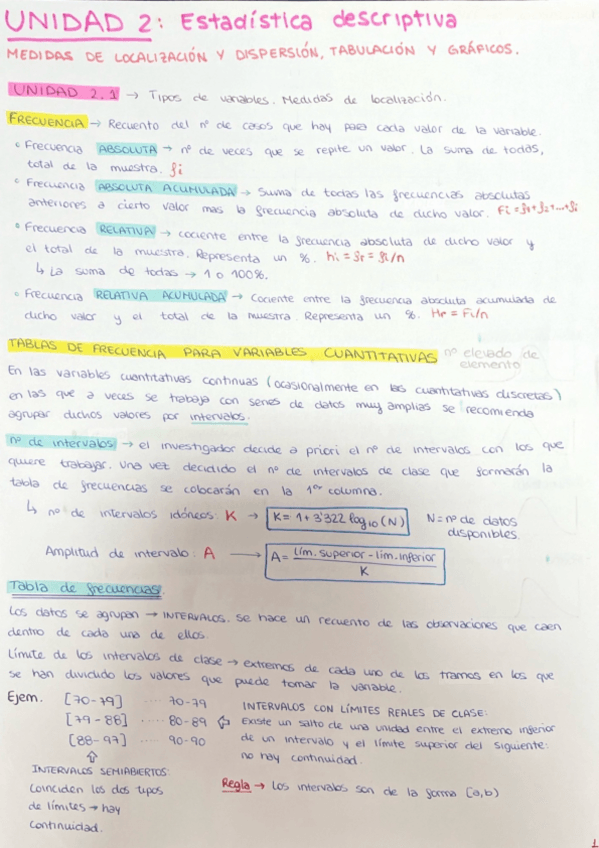 UNIDAD 2: Estadística descriptiva
MEDIDAS DE LOCALIZACIÓN Y DISPERSIÓN, TABULACIÓN Y GRÁFICOS.
UNIDAD 2.1 → Tipos de variables. Medidas de localización.
FRECUENCIA → Recuento del nº de casos que hay para cada valor de la variable.
• Frecuencia ABSOLUTA → nº de veces que se repite un valor. La suma de todas,
total de la muestra. fi
• Frecuencia ABSOLUTA ACUMULADA → Suma de todas las frecuencias absolutas
anteriores a cierto valor mas la frecuencia absoluta de dicho valor. Fi = f1+f2+...+fi
• Frecuencia RELATIVA → cociente entre la frecuencia absoluta de dicho valor y
el total de la muestra. Representa un %. hi = fr = fi/n
↳ La suma de todas → 1 o 100%.
• Frecuencia RELATIVA ACUMULADA → Cociente entre la frecuencia absoluta acumulada de
dicho valor y el total de la muestra. Representa un %. Hr = Fi/n
TABLAS DE FRECUENCIA PARA VARIABLES CUANTITATIVAS nº elevado de
elemento
En las variables cuantitativas continuas (ocasionalmente en las cuantitativas discretas)
en las que a veces se trabaja con series de datos muy amplias se recomienda
agrupar dichos valores por intervalos.
nº de intervalos → el investigador decide a priori el nº de intervalos con los que
quiere trabajar. Una vez decidido el nº de intervalos de clase que formarán la
tabla de frecuencias se colocarán en la 1er columna.
↳ nº de intervalos idóneos: K → K = 1+3'322 log10 (N) N = nº de datos
disponibles.
Amplitud de intervalo: A → A = Lím. superior - Lím. inferior / K
Tabla de frecuencias.
Los datos se agrupan → INTERVALOS. Se hace un recuento de las observaciones que caen
dentro de cada uno de ellos.
Límite de los intervalos de clase → extremos de cada uno de los tramos en los que
se han dividido los valores que puede tomar la variable.
Ejem. [70-79] ..... 70-79 INTERVALOS CON LÍMITES REALES DE CLASE:
[79-88] ..... 80-89 ⇦ Existe un salto de una unidad entre el extremo inferior
[88-97] ..... 90-90 de un intervalo y el límite superior del siguiente:
⇧ no hay continuidad.
INTERVALOS SEMIABIERTOS:
Coinciden los dos tipos Regla → Los intervalos son de la forma [a,b)
de límites → hay
continuidad.
1